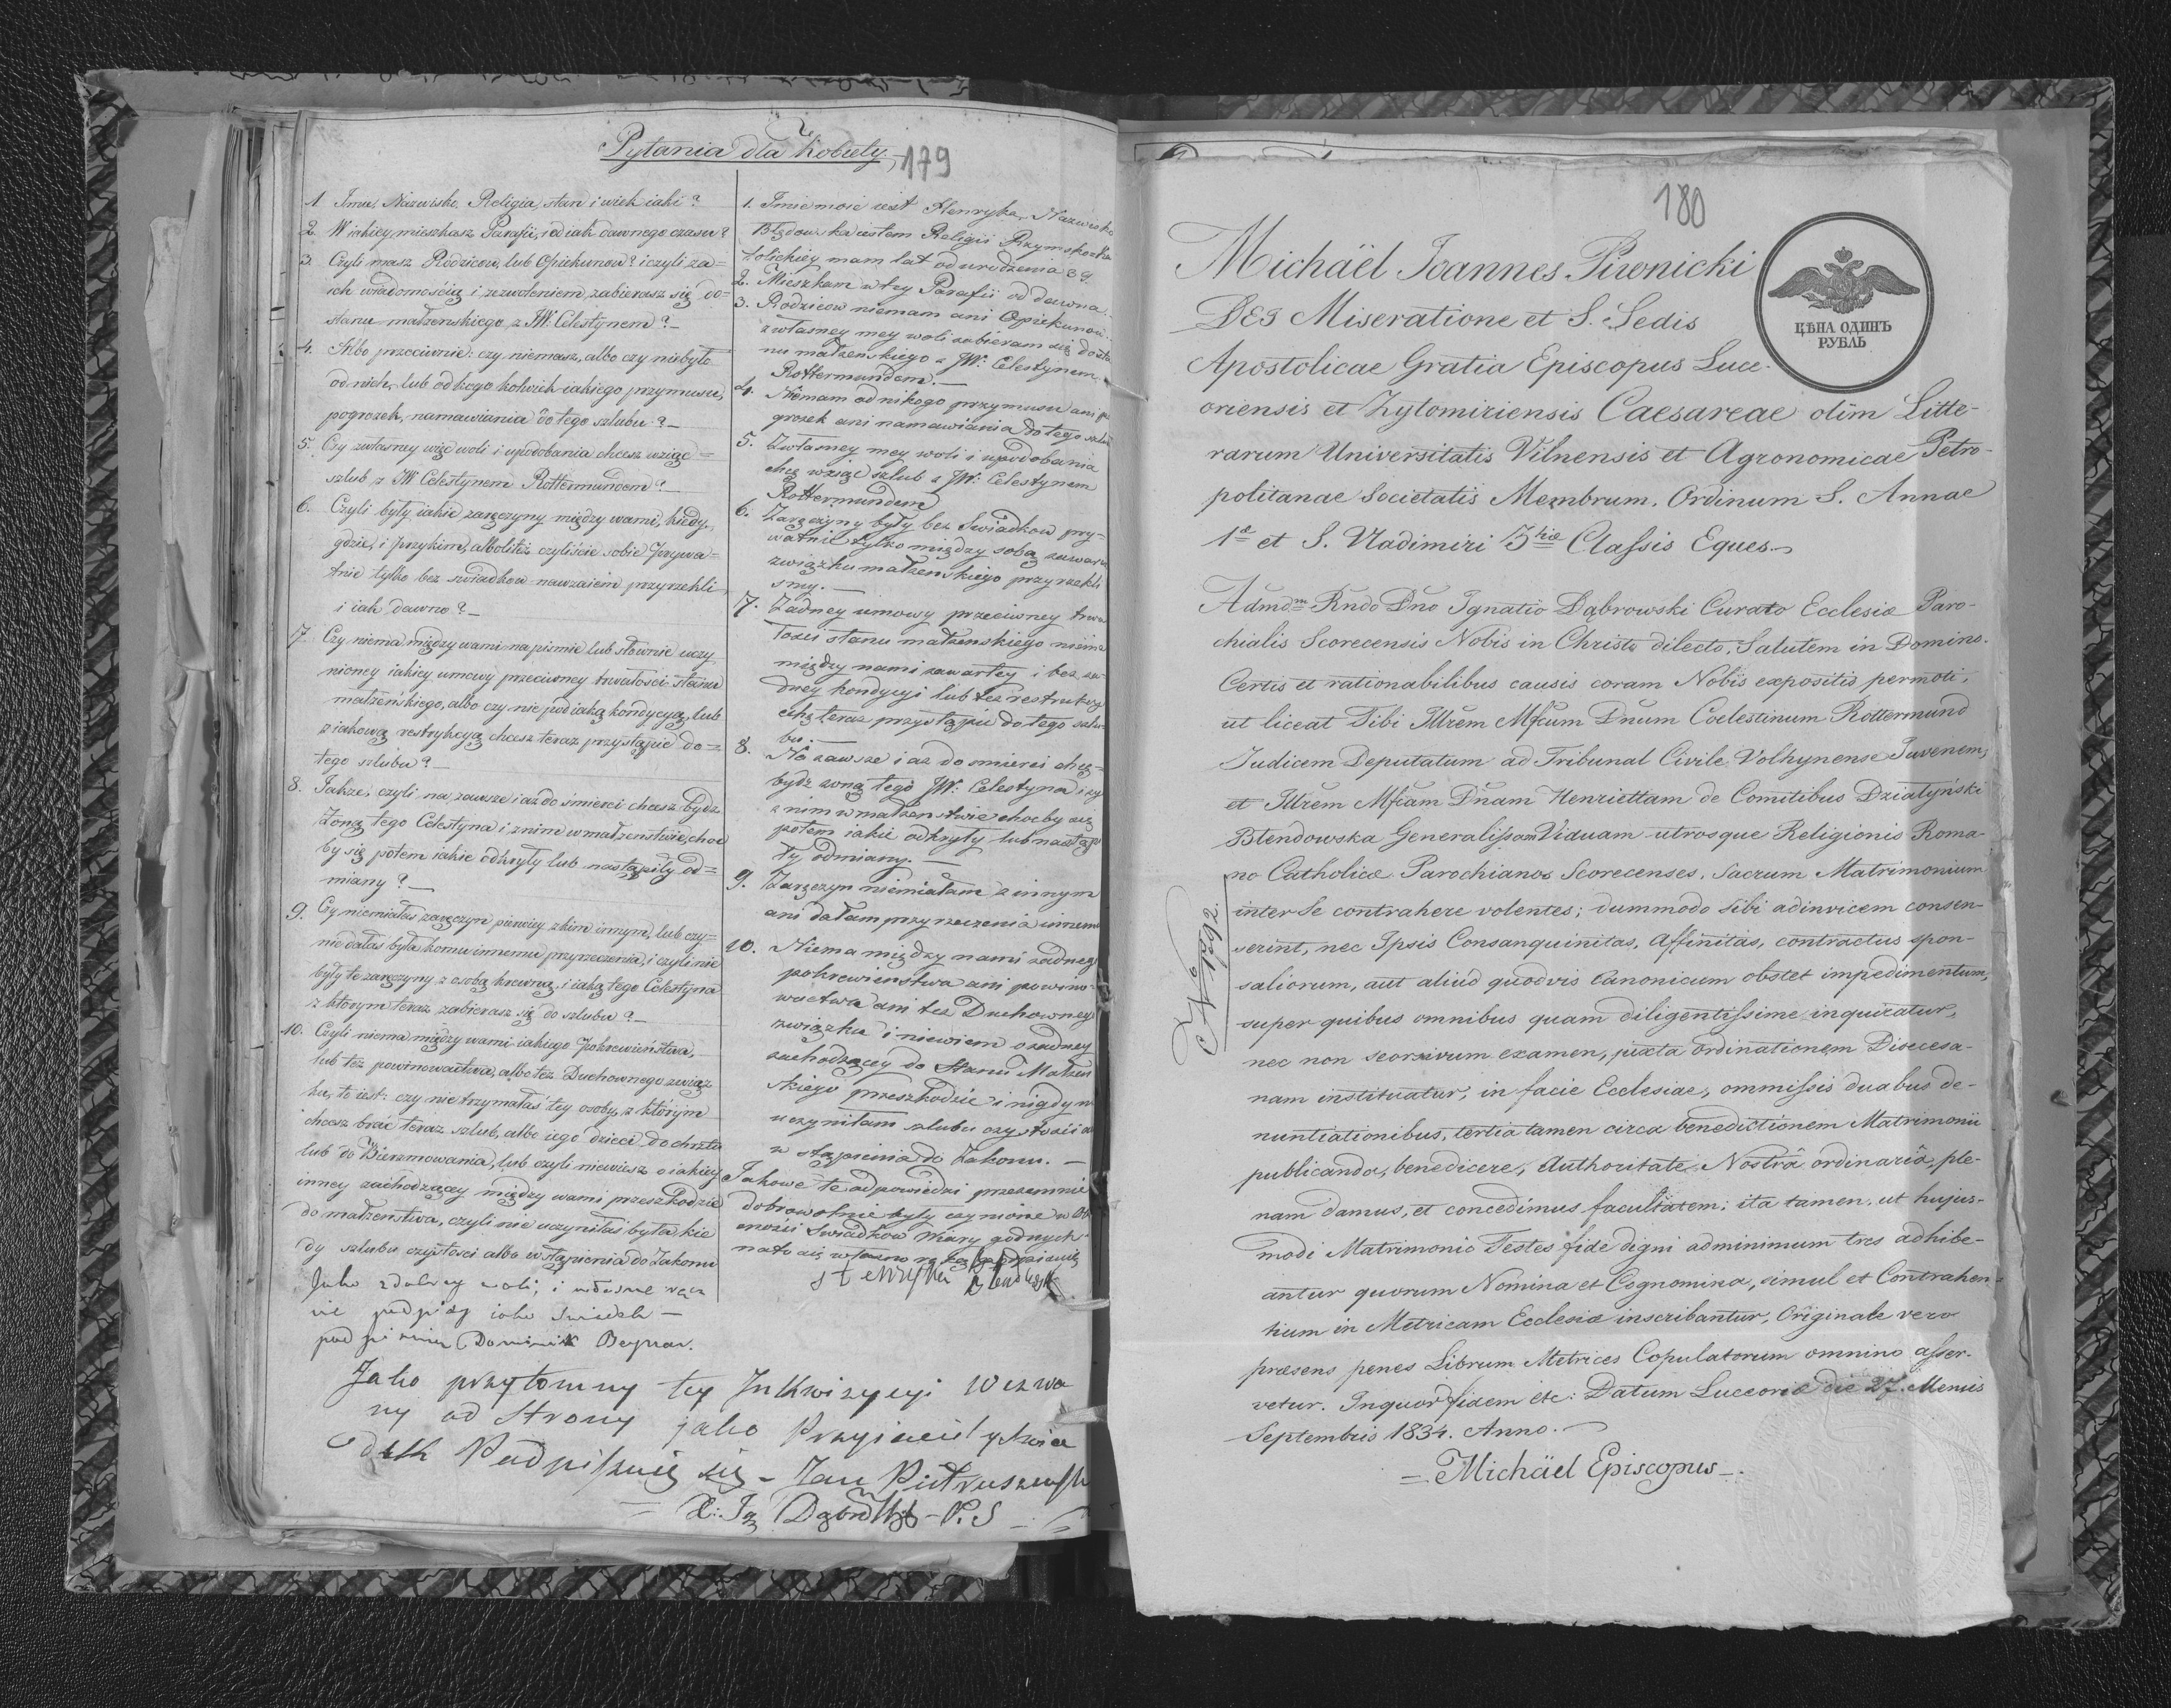 Pytania dla Kobiety.
179
1 Imie, Nazwisko, Religia, stan i wiek iaki?
2. W iakiey mieszkasz Parafii, i od iak dawnego czasu?
3. Czyli masz Rodzicow, lub Opiekunow? i czyli za=
ich wiadomością i zezwoleniem, zabierasz się do=
stanu małzenskiego z JW. Celestynem?
4. Albo przeciwnie: czy niemasz, albo czy niebyło
od nich, lub od kogo kolwiek iakiego przymusu,
pogrozek, namawiania do tego szlubu?
5. Czy zwłasney więc woli i upodobania chcesz wziąć=
szlub z JW Celestynem Rottermundem?
6. Czyli były iakie zaręczyny między wami, kiedy,
gdzie, i przykim, albolitéż czyliście sobie Prywa=
tnie tylko bez swiadkow nawzaiem przyrzekli
i iak dawno?
7. Czy niema między wami na pismie lub słownie uczy
nioney iakiey umowy przeciwney trwałosci stanu
małzeńskiego, albo czy nie pod iaką kondycyą, lub
z iakową restrykcyą chcesz teraz przystąpić do=
tego szlubu?
8. Takze, czyli na zawsze i aż do śmierci chcesz bydz
Zoną tego Celestyna i znim w małzenstwie, choc
by się potem iakie odkryły lub nastąpiły od=
miany?
9. Czy niemiałaś zaręczyn pierwiey zkim innym, lub czy=
nie dałas była komu innemu przyrzeczenia, i czyli nie
były te zaręczyny z osobą krewną, i iaką tego Celestyna
z ktorym teraz zabierasz się do szlubu?
10. Czyli niema między wami iakiego Pokrewieństwa,
lub téż powinowactwa, albo téż Duchownego związ
ku, to iest: czy nie trzymałaś tey osoby, z którym
chcesz brać teraz szlub, albo iego dzieci do chrztu
lub do Bierzmowania, lub czyli niewiesz o iakiey
inney zachodzącey między wami przeszkodzie
do małzenstwa, czyli nie uczyniłaś była kie
dy szlubu czystosci albo wstąpienia do Zakonu
1. Imie moie iest Henryka, Nazwisko
Błędowska iestem Religii Rzymsko Ka
tolickiey mam lat od urodzenia 39
2. Mieszkam w tey Parafii od dawna.
3. Rodzicow niemam ani Opiekunow
zwłasney mey woli zabieram się do sta
nu małzenskiego z JW: Celestynem
Rottermundem.
4. Niemam od nikogo przymusu ani po
grozek ani namawiania do tego szlubu
5. Zwłasney mey woli i upodobania
chcę wziąć szlub z JW: Celestynem
Rottermundem
6. Zaręczyny były bez Swiadkow pry=
watnie tylko między sobą zawar
związku małzenskiego przyrzekli
smy.
7. Zadney umowy przeciwney trwa
łosci stanu małzenskiego niema
między nami zawartey i bez za
dney kondycyi lub tez restrukcyi
chcę teraz przystąpic do tego szlu
bu.
8. Na zawsze i az do smierci chcę=
bydz zoną tego JW: Celestyna i zy
z nim w małzenstwie chocby się
potem iakie odkryły lub nastąpi
ły odmiany.
9. Zaręczyn niemiałam z innym
ani dałam przyrzeczenia innemu
10. Niema między nami zadnego
pokrewienstwa ani powino
wactwa ani tez Duchownego
związku i niewiem o zadney
zachodzącey do Stanu Małzen
skiego przeszkodzie i nigdy nie
uczyniłam szlubu czystosci a
wstąpienia do Zakonu.
Takowe te odpowiedzi przezemnie
dobrowolnie były czynione w ob
cnosci Swiadkow Wiary godnych
nato się własną ręką podpisuię
Henryka Błendowska
Jako z dobrey woli, i własne ręcz
nie podpisę iako Swiadek
podpisuie Dominik Beynar.
Jako przytomny tey Inkwizycyi wezwa
ny od Strony jako Przyiaciel y Swia
dek Podpisuię się - Jan Pietruszewsk
X: Ig Dąbrowski - P. S
180
ЦѢНА ОДИНЪ
РУБЛЬ
Michaël Joannes Piwnicki
DEI Miseratione et S. Sedis
Apostolicae Gratia Episcopus Luce
oriensis et Zytomiriensis Caesareae olim Litte-
rarum Universitatis Vilnensis et Agronomicae Petro-
politanae Societatis Membrum. Ordinum S. Annae
1æ et S. Vladimiri 3tiæ Classis Eques
Admdm Rndo Dno Ignatio Dąbrowski Curato Ecclesiæ Paro-
chialis Scorecensis Nobis in Christo dilecto, Salutem in Domino.
Certis et rationabilibus causis coram Nobis expositis permoti,
ut liceat Tibi Illrem Mfcum Dnum Coelestinum Rottermund
Judicem Deputatum ad Tribunal Civile Volhynense Juvenem,
et Illrem Mfcam Dnam Henriettam de Comitibus Działyński
Błendowska Generalissam Viduam utrosque Religionis Roma-
no Catholicæ Parochianos Scorecenses, Sacrum Matrimonium
inter Se contrahere volentes; dummodo sibi adinvicem consen-
serint, nec Ipsis Consanquinitas, Affinitas, contractus spon-
saliorum, aut aliud quodvis Canonicum obstet impedimentum,
super quibus omnibus quam diligentissime inquiratur,
nec non seorsivum examen, juxta ordinationem Dioecesa-
nam instituatur, in facie Ecclesiae, ommissis duabus de-
nuntiationibus, tertia tamen circa benedictionem Matrimonii
publicanda, benedicere, Authoritate Nostrâ ordinariâ, ple-
nam damus, et concedimus facultatem; ita tamen, ut hujus-
modi Matrimonio Testes fide digni adminimum tres adhibe-
antur quorum Nomina et Cognomina, simul et Contrahen-
tium in Metricam Ecclesiæ inscribantur, Originale vero
præsens penes Librum Metrices Copulatorum omnino asser-
vetur. Inquor fidem etc: Datum Luceoriæ die 27. Mensis
Septembris 1834. Anno.
Michäel Episcopus
No 1892.